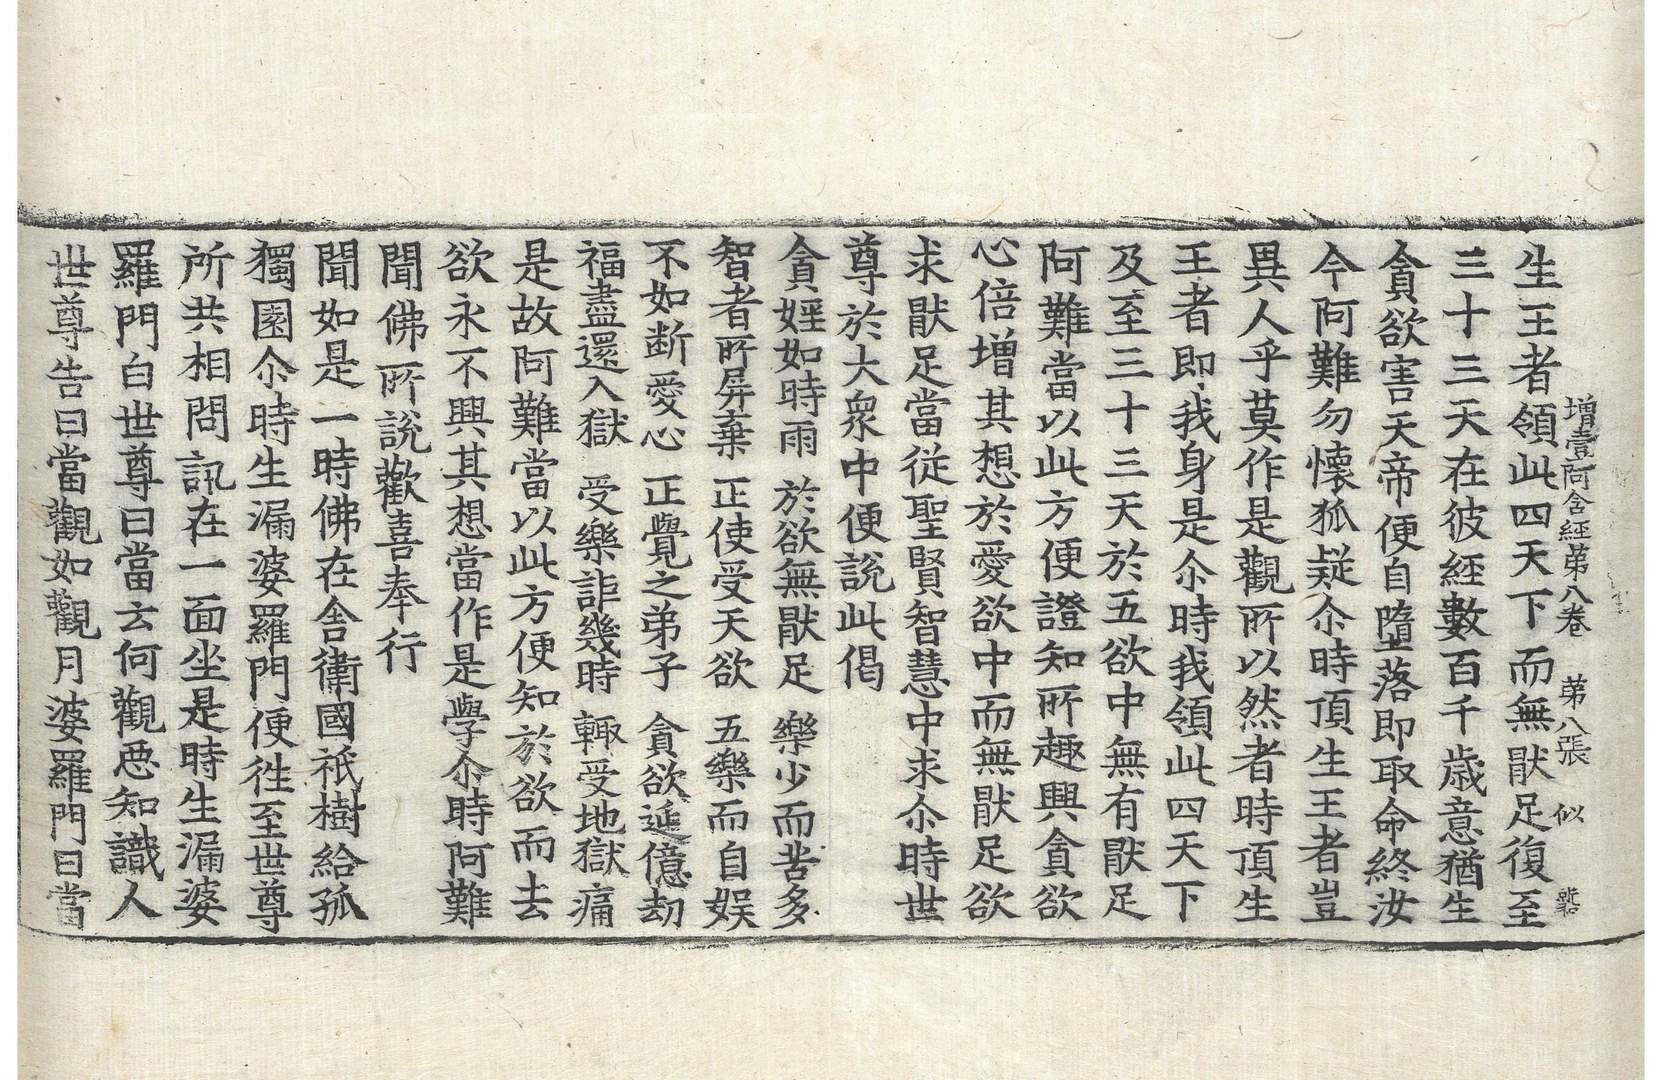 增壹阿含經第八卷　第八張　似
生王者領此四天下而無猒足復至
三十三天在彼經數百千歲意猶生
貪欲害天帝便自墮落即取命終汝
今阿難勿懷狐疑尒時頂生王者豈
異人乎莫作是觀所以然者時頂生
王者即我身是尒時我領此四天下
及至三十三天於五欲中無有猒足
阿難當以此方便證知所趣興貪欲
心倍增其想於愛欲中而無猒足欲
求猒足當從聖賢智慧中求尒時世
尊於大衆中便說此偈
貪婬如時雨　於欲無猒足　樂少而苦多
智者所屏棄　正使受天欲　五樂而自娛
不如断愛心　正覺之弟子　貪欲延億劫
福盡還入獄　受樂詎幾時　輙受地獄痛
是故阿難當以此方便知於欲而去
欲永不興其想當作是學尒時阿難
聞佛所說歡喜奉行
聞如是一時佛在舍衛國祇樹給孤
獨園尒時生漏婆羅門便徃至世尊
所共相問訊在一面坐是時生漏婆
羅門白世尊曰當云何觀惡知識人
世尊告曰當觀如觀月婆羅門曰當